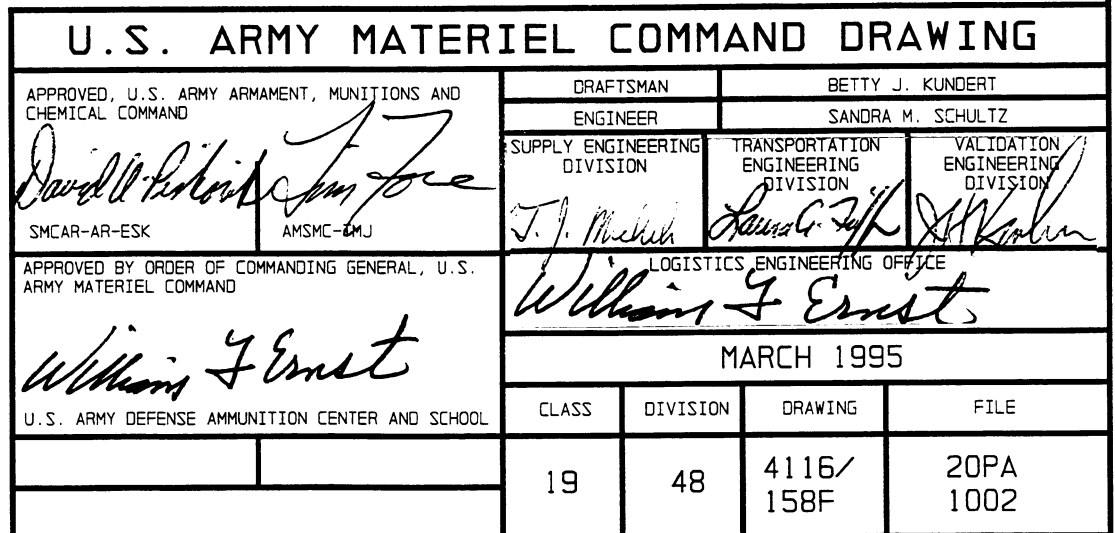 U.S. ARMY MATERIEL COMMAND DRAWING
APPROVED, U.S. ARMY ARMAMENT, MUNITIONS AND
CHEMICAL COMMAND
David
SMCAR-AR-ESK
Jim Fore
AMSMC-TMJ
APPROVED BY ORDER OF COMMANDING GENERAL, U.S.
ARMY MATERIEL COMMAND
William F Ernst
U.S. ARMY DEFENSE AMMUNITION CENTER AND SCHOOL
DRAFTSMAN
BETTY J. KUNDERT
ENGINEER
SANDRA M. SCHULTZ
SUPPLY ENGINEERING
DIVISION
T. J. Michels
TRANSPORTATION
ENGINEERING
DIVISION
Laura A.
VALIDATION
ENGINEERING
DIVISION
LOGISTICS ENGINEERING OFFICE
William F Ernst
MARCH 1995
CLASS
DIVISION
DRAWING
FILE
19
48
4116/
158F
20PA
1002